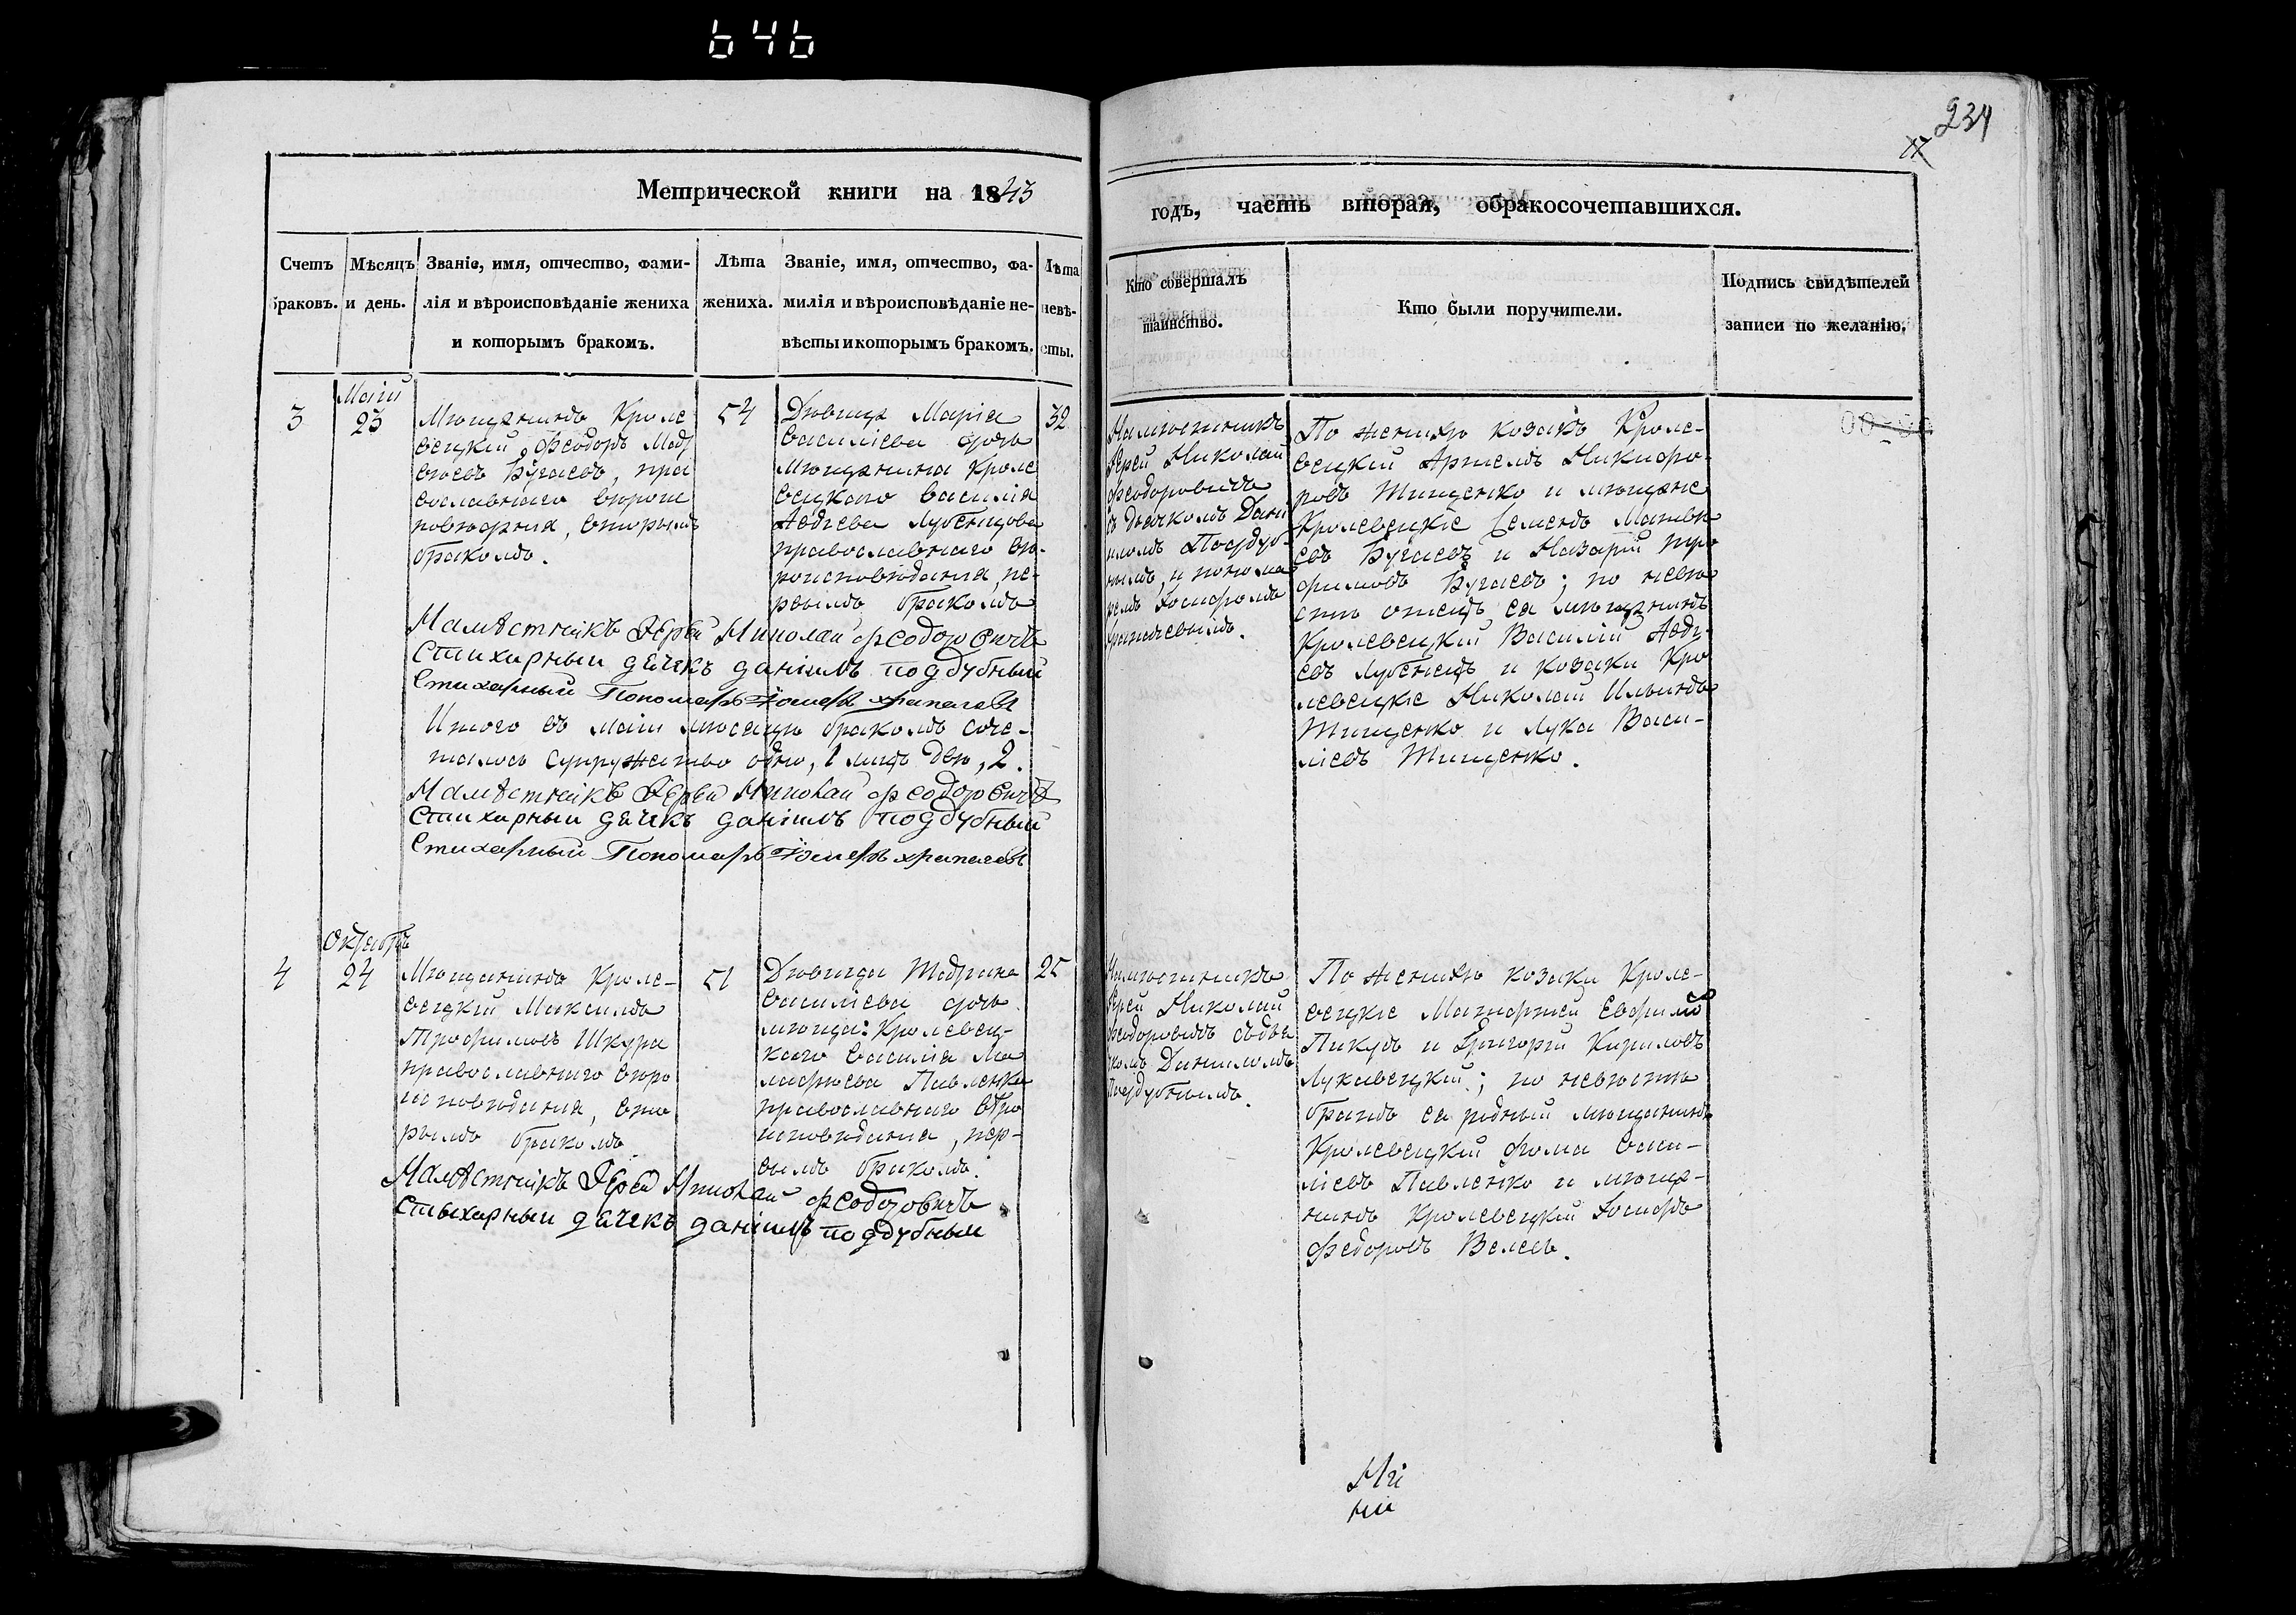 646
234
17
Метрической книги на 1843
годъ, часть вторая, обракосочетавшихся.
Счетъ браковъ.
Мѣсяцъ и день.
Званіе, имя, отчество, фами-
лія и вѣроисповѣданіе жениха
и которымъ бракомъ.
Лѣта
жениха.
Званіе, имя, отчество, фа-
милія и вѣроисповѣданіе не-
вѣсты и которымъ бракомъ.
Лѣта
невѣ-
сты.
Кто совершалъ
таинство.
Кто были поручители.
Подпись свидѣтелей
записи по желанію.
3
Маій
23
Мѣщанинъ Кроле
вецкий Феодоръ
Бугаевъ, пра
вославнаго вѣрои
повѣданія, вторымъ
бракомъ.
54
Дѣвица Марія
Василіева дочь
Мѣщанина Кроле
вецкаго Василія
Авдіева Лубенцова
православнаго вѣ-
роисповѣданія, пе-
рвымъ бракомъ
32
Намѣстникъ
Іерей Николай
Феодоровичъ
съ дьячкомъ Дані
иломъ Поддуб-
нымъ, и понома
ремъ Іосифомъ
Храпачевымъ.
По женихѣ козакъ Кроле-
вецкий Артемъ Никифо-
ровъ Тищенко и мѣщане
Кролевецкіе Семенъ Матвѣ
евъ Бугаевъ и Назарій Тро
фимовъ Бугаевъ; по невѣ
стѣ отецъ ея мѣщанинъ
Кролевецкий Василій Авді-
евъ Лубенецъ и козаки Кро
левецкіе Николай Ильинъ
Тищенко и Лука Васи-
ліевъ Тищенко.
Намѣстникъ Іерей Николай Феодоровичъ
Стихарный дячекъ даніилъ поддубный
Стихарный Пономарь Іосифъ Храпачевъ
Итого въ маіи мѣсяцѣ бракомъ соче-
талось супружество одно, 1 лицъ два, 2.
Намѣстникъ Іерей Николай Феодоровичъ
Стихарный дячекъ даніилъ поддубный
Стихарный Пономарь Іосифъ Храпачевъ
4
Октябрь
24
Мѣщанинъ Кроле-
вецкий Максимъ
Трофимовъ Шкура
православнаго вѣро
исповѣданія, вто
рымъ бракомъ
51
Дѣвица
Василіева дочь
мѣща: Кролевец-
каго Василія Ма
Павленка
православнаго вѣро
исповѣданія, пер-
вымъ бракомъ.
25
Намѣстникъ
Іерей Николай
Феодоровичъ съ дья
комъ Даниломъ
Поддубнымъ.
По женихѣ козаки Кроле-
вецкіе Евфимо
Пикузъ и Григорій Кириловъ
Лукавецкий; по невѣстѣ
братъ ея родный мѣщанинъ
Кролевецкий Фома Васи-
ліевъ Павленко и мѣща-
нинъ Кролевецкий Іосифъ
Федоровъ
Намѣстникъ Іерей Николай Феодоровичъ
Стихарный дячекъ даніилъ поддубный